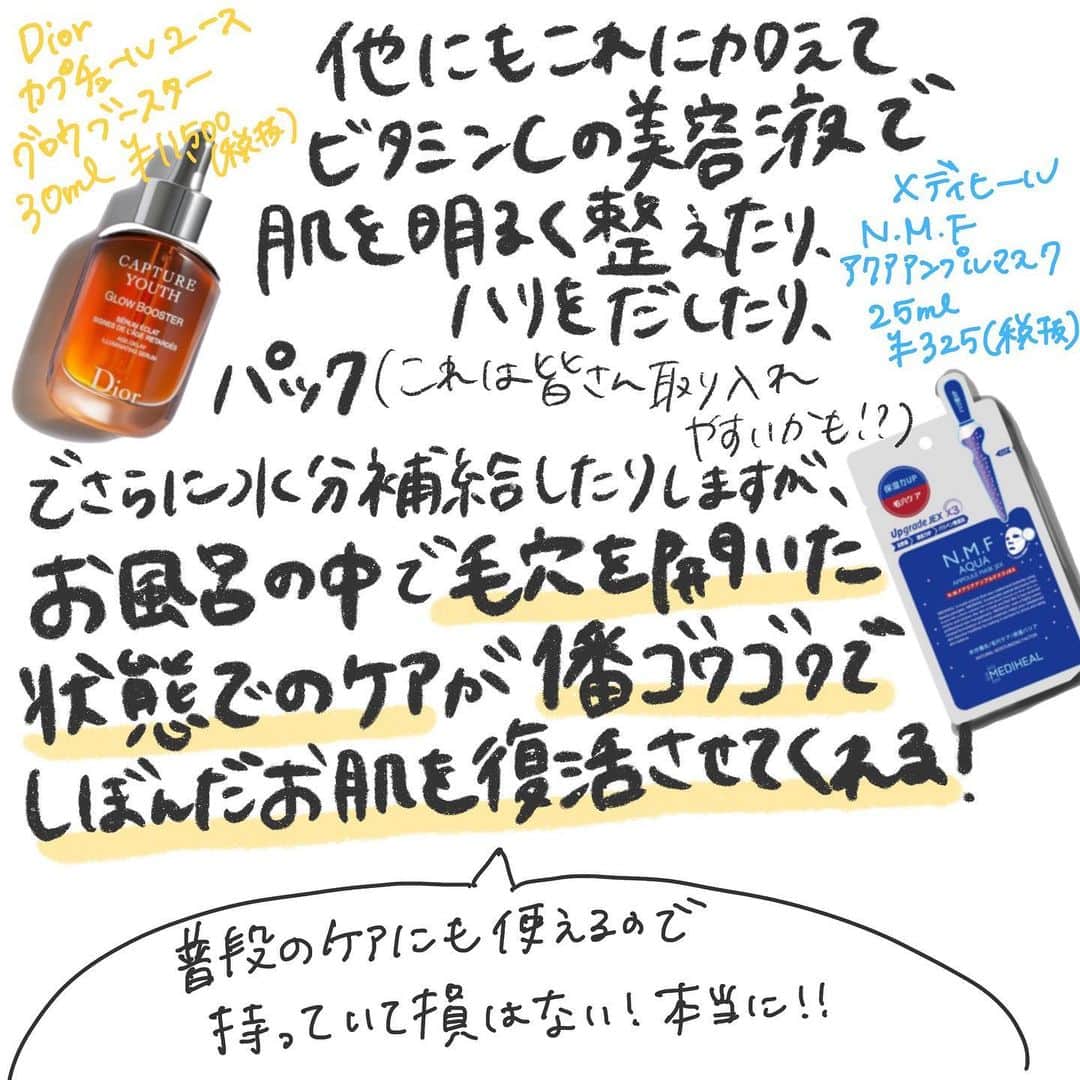 Dior
カプチュールユース
グロウブースター
30ml ¥11,500
(税抜)
他にもこれに加えて
ビタミンCの美容液で
肌を明るく整えたり、
ハリをだしたり、
パック(これは皆さん取り入れ
やすいかも!?)
でさらに水分補給したりしますが、
お風呂の中で毛穴を開いた
状態でのケアが1番ゴウゴウで
しぼんだお肌を復活させてくれる!
メディヒール
N.M.F
アクアアンプルマスク
25ml
¥325(税抜)
CAPTURE
YOUTH
GLOW BOOSTER
SÉRUM ÉCLAT
SIGNES DE L'ÂGE RETARDÉS
AGE-DELAY
ILLUMINATING SERUM
Dior
保湿力UP
毛穴ケア
Upgrade JEX X3
N.M.F
AQUA
AMPOULE MASK JEX
NATURAL MOISTURIZING FACTOR
MEDIHEAL
普段のケアにも使えるので
持っていて損はない!本当に!!